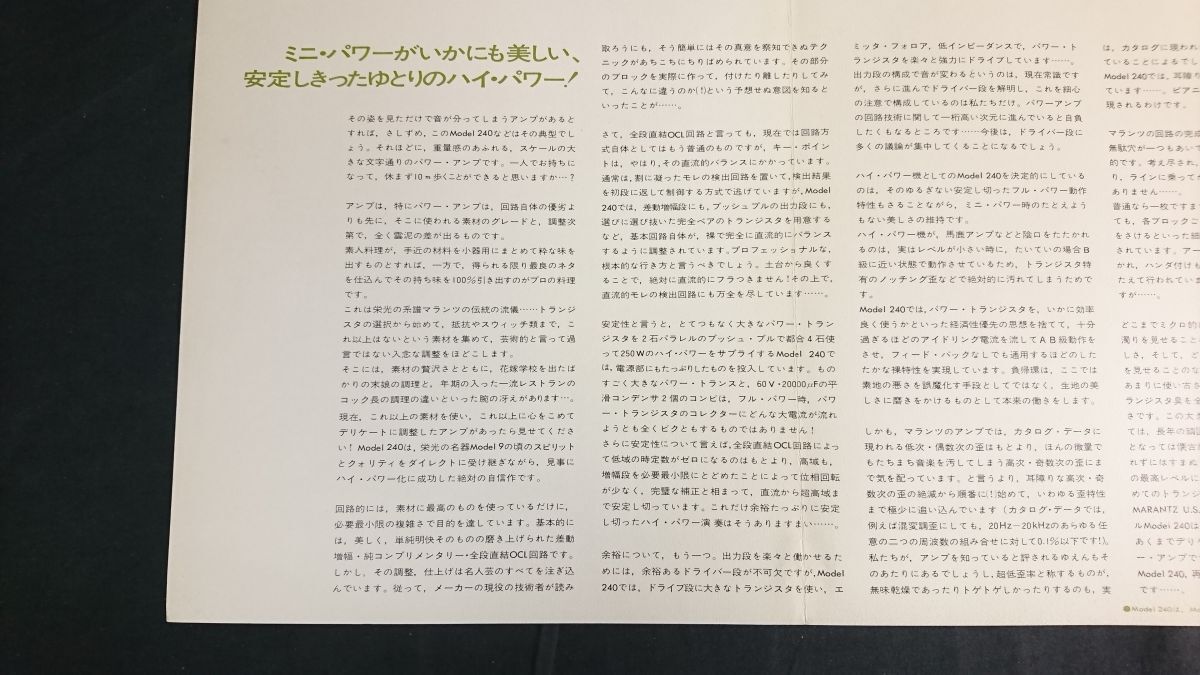 ミニ・パワーがいかにも美しい、
安定しきったゆとりのハイ・パワー！
その姿を見ただけで音が分ってしまうアンプがあると
すれば，さしずめ，このModel 240などはその典型でし
ょう。それほどに，重量感のあふれる，スケールの大
きな文字通りのパワー・アンプです。一人でお持ちに
なって，休まず10m歩くことができると思いますか…？
アンプは，特にパワー・アンプは，回路自体の優劣よ
りも先に，そこに使われる素材のグレードと，調整次
第で，全く雲泥の差が出るものです。
素人料理が，手近の材料を小器用にまとめて粋な味を
出すものとすれば，一方で，得られる限り最良のネタ
を仕込んでその持ち味を100%引き出すのがプロの料理
です。
これは栄光の系譜マランツの伝統の流儀……トランジ
スタの選択から始めて，抵抗やスウィッチ類まで，こ
れ以上はないという素材を集めて，芸術的と言って過
言ではない入念な調整をほどこします。
そこには，素材の贅沢さとともに，花嫁学校を出たば
かりの末娘の調理と，年期の入った一流レストランの
コック長の調理の違いといった腕の冴えがあります…。
現在，これ以上の素材を使い，これ以上に心をこめて
デリケートに調整したアンプがあったら見せてくださ
い！Model 240は，栄光の名器Model 9の頃のスピリット
とクォリティをダイレクトに受け継ぎながら，見事に
ハイ・パワー化に成功した絶対の自信作です。
回路的には，素材に最高のものを使っているだけに，
必要最小限の複雑さで目的を達しています。基本的に
は，美しく，単純明快そのものの磨き上げられた差動
増幅・純コンプリメンタリー・全段直結OCL回路です。
しかし，その調整，仕上げは名人芸のすべてを注ぎ込
んでいます。従って，メーカーの現役の技術者が読み
取ろうにも，そう簡単にはその真意を察知できぬテク
ニックがあちこちにちりばめられています。その部分
のブロックを実際に作って，付けたり離したりしてみ
て，こんなに違うのか(！)という予想せぬ意図を知ると
いったことが……。
さて，全段直結OCL回路と言っても，現在では回路方
式自体としてはもう普通のものですが，キー・ポイン
トは，やはり，その直流的バランスにかかっています。
通常は，割に凝ったモレの検出回路を置いて，検出結果
を初段に返して制御する方式で逃げていますが，Model
240では，差動増幅段にも，プッシュプルの出力段にも，
選びに選び抜いた完全ペアのトランジスタを用意する
など，基本回路自体が，裸で完全に直流的にバランス
するように調整されています。プロフェッショナルな，
根本的な行き方と言うべきでしょう。土台から良くす
ることで，絶対に直流的にフラつきません！その上で，
直流的モレの検出回路にも万全を尽しています……。
安定性と言うと，とてつもなく大きなパワー・トラン
ジスタを2石パラレルのプッシュ・プルで都合4石使
って250WのハイパワーをサプライするModel 240で
は，電源部にもたっぷりしたものを投入しています。もの
すごく大きなパワー・トランスと，60V・20000μFの平
滑コンデンサ2個のコンビは，フル・パワー時，パワ
ー・トランジスタのコレクターにどんな大電流が流れ
ようとも全くビクともするものではありません！
さらに安定性について言えば，全段直結OCL回路によっ
て低域の時定数がゼロになるのはもとより，高域も，
増幅段を必要最小限にとどめたことによって位相回転
が少なく，完璧な補正と相まって，直流から超高域ま
で安定し切っています。これだけ余裕たっぷりに安定
し切ったハイ・パワー演奏はそうありますまい……。
余裕について，もう一つ。出力段を楽々と働かせるた
めには，余裕あるドライバー段が不可欠ですが，Model
240では，ドライブ段に大きなトランジスタを使い，エ
ミッタ・フォロア，低インピーダンスで，パワー・ト
ランジスタを楽々と強力にドライブしています……。
出力段の構成で音が変わるというのは，現在常識です
が，さらに進んでドライバー段を解明し，これを細心
の注意で構成しているのは私たちだけ。パワーアンプ
の回路技術に関して一桁高い次元に進んでいると自負
したくもなるところです……今後は，ドライバー段に
多くの議論が集中してくることになるでしょう。
ハイ・パワー機としてのModel 240を決定的にしている
のは，そのゆるぎない安定し切ったフル・パワー動作
特性もさることながら，ミニ・パワー時のたとえよう
もない美しさの維持です。
ハイ・パワー機が，馬鹿アンプなどと陰口をたたかれ
るのは，実はレベルが小さい時に，たいていの場合B
級に近い状態で動作させているため，トランジスタ特
有のノッチング歪などで絶対的に汚れてしまうためで
す。
Model 240では，パワー・トランジスタを，いかに効率
良く使うかといった経済性優先の思想を捨てて，十分
過ぎるほどのアイドリング電流を流してAB級動作を
させ，フィード・バックなしでも通用するほどのした
たかな裸特性を実現しています。負帰還は，ここでは
素地の悪さを誤魔化す手段としてではなく，生地の美
しさに磨きをかけるものとして本来の働きをします。
しかも，マランツのアンプでは，カタログ・データに
現われる低次・偶数次の歪はもとより，ほんの微量で
もたちまち音楽を汚してしまう高次・奇数次の歪にま
で気を配っています。と言うより，耳障りな高次・奇
数次の歪の絶滅から順番に(！)始めて，いわゆる歪特性
まで極少に追い込んでいます（カタログ・データでは，
例えば混変調歪にしても，20Hz−20kHzのあらゆる任
意の二つの周波数の組み合せに対して0.1%以下です!）。
私たちが，アンプを知っていると評されるゆえんもそ
のあたりにあるでしょうし，超低歪率と称するものが，
無味乾燥であったりトゲトゲしかったりするのも，実
は，カタログに現われ
ていることによるでし
Model 240では，耳障り
ています……。ピアニ
現されるわけです。
マランツの回路の完成
無駄穴が一つもあいて
的です。考え尽され，
り，ラインに乗ってか
ありません……。
普通なら一枚ですま
ても，各ブロックご
をさけるといった細
されています。アー
かれ，ハンダ付けも
たえて行われています
すが……。
どこまでミクロ的に
濁りを見せることな
しさ，そして，こ
を見せることのな
あまりに使い古さ
ランジスタ臭を全
さです。この大
ては，長年の頑固
となっては懐古
れずにはすまね
の最高レベルに
めてのトランジ
MARANTZ U.S.
ルModel 240は
あくまでデリケ
ー・アンプで
Model 240，再
です……。
●Model 240は，Mo